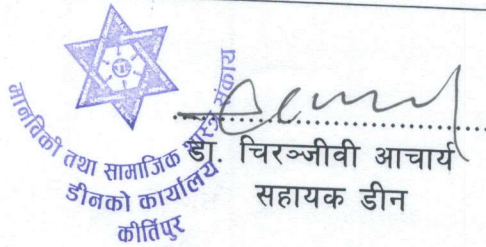 मानविकी तथा सामाजिक शास्त्र संकाय
डीनको कार्यालय
कीर्तिपुर
डा. चिरञ्जीवी आचार्य
सहायक डीन